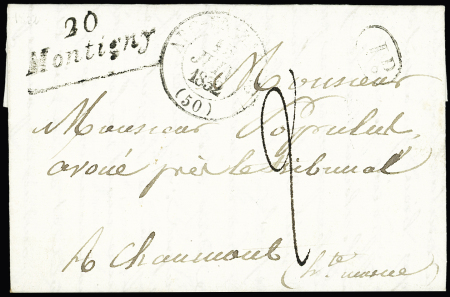 20
Montigny
1832
(50)
Monsieur
Monsieur
avoué près le tribunal
A Chaumont
(hte marne)
2